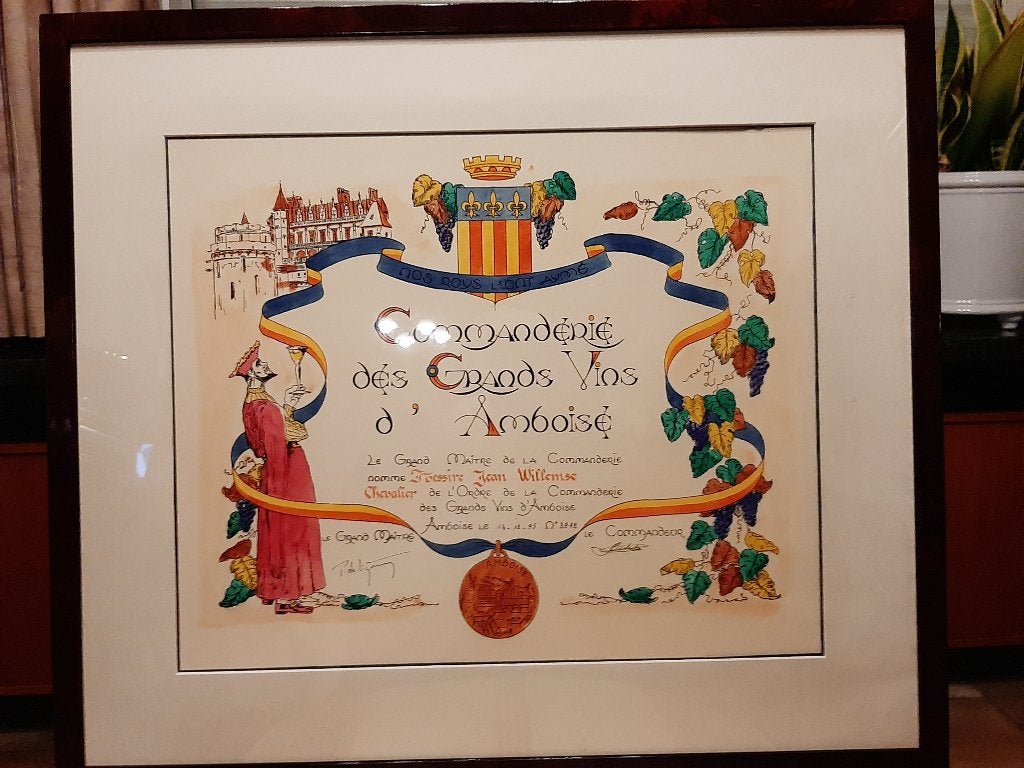 NOS ROYS L'ONT AYMÉ
Commanderie
des Grands Vins
d'Amboise
Le Grand Maître de la Commanderie
nomme Messire Jean Willemse
Chevalier de l'Ordre de la Commanderie
des Grands Vins d'Amboise
Amboise le 14.12.95 N° 3812
Le Grand Maître
Le Commandeur
AMBOISE